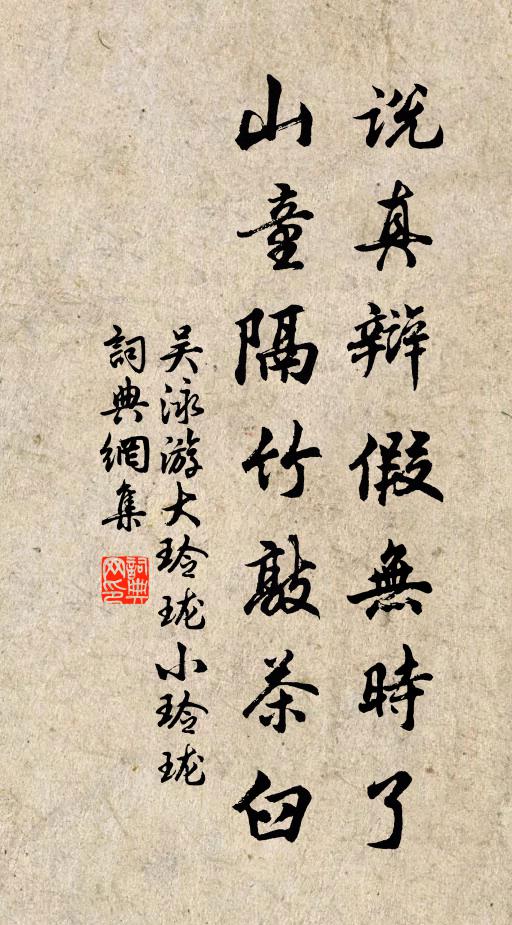 说真辩假無時了
山童隔竹敲茶臼
吴泳游大玲珑小玲珑
詞典網集
詞典网印